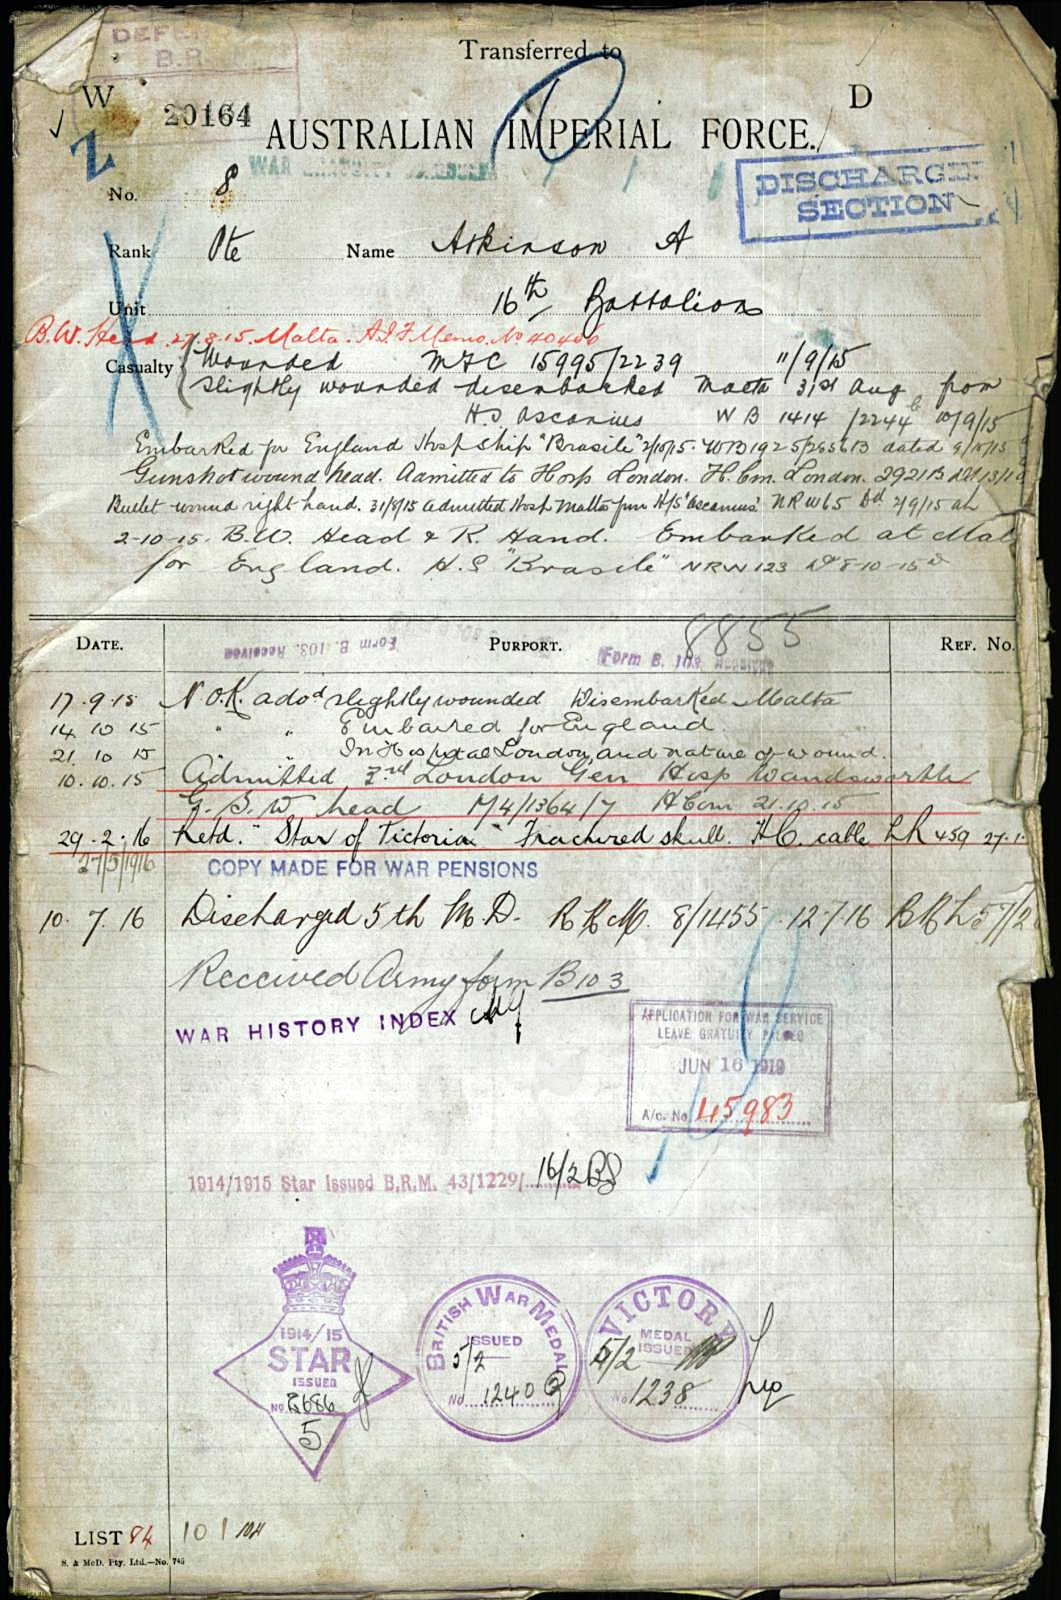 DEFE
B.R.
Transferred to
W D
20164
AUSTRALIAN IMPERIAL FORCE.
Z
WAR GRATUITY
DISCHARGE
SECTION
No. 8
Rank Pte Name Atkinson A
Unit 16th Battalion
B.W. Head 27.8.15 Malta. A.I.F. Memo. No 40406
Casualty Wounded MFC 15995/2239 11/9/15
Slightly wounded disembarked Malta 31st Aug from
H.S Ascanius WB 1414 /2244 10/9/15
Embarked for England Hosp ship "Brasile" 2/10/15. WB1925/2656B dated 9/10/15
Gunshot wound head. Admitted to Hosp London. H. Com. London. 2921B
Bullet wound right hand. 31/8/15 admitted Hosp Malta from H/S "Ascanius" NRW65 Dd 2/9/15
2-10-15. B.W. Head & R. Hand. Embarked at Mal
for England. H.S "Brasile" NRW 123 8-10-15
DATE. PURPORT. REF. No.
Form B. 103. Received
8855
Form B. 103. Received
17.9.15 N.O.K. advd slightly wounded Disembarked Malta
14 10 15 " " Embarked for England
21. 10 15 In Hospital London, and nature of wound.
10.10.15 Admitted 3rd London Gen Hosp Wandsworth
G.S.W head M4/1364/7 H Com 21.10.15
29.2.16 Retd. "Star of Victoria" Fractured skull. H.C. cable LR 459 27.1
27/5/1916 COPY MADE FOR WAR PENSIONS
10.7.16 Discharged 5th M.D. R.R.M. 8/1455 12.7.16 BRL 57/2
Received Army form B103
WAR HISTORY INDEX
APPLICATION FOR WAR SERVICE
LEAVE GRATUITY PASSED
JUN 16 1919
A/c. No. 45983
1914/1915 Star Issued B.R.M. 43/1229/ 16/2
1914/15
STAR
ISSUED
No 2686
5
BRITISH WAR MEDAL
ISSUED
5/2
No. 1240
VICTORY
MEDAL
ISSUED
5/2
No 1238
LIST 84 101
S. & McD. Pty. Ltd.—No. 745